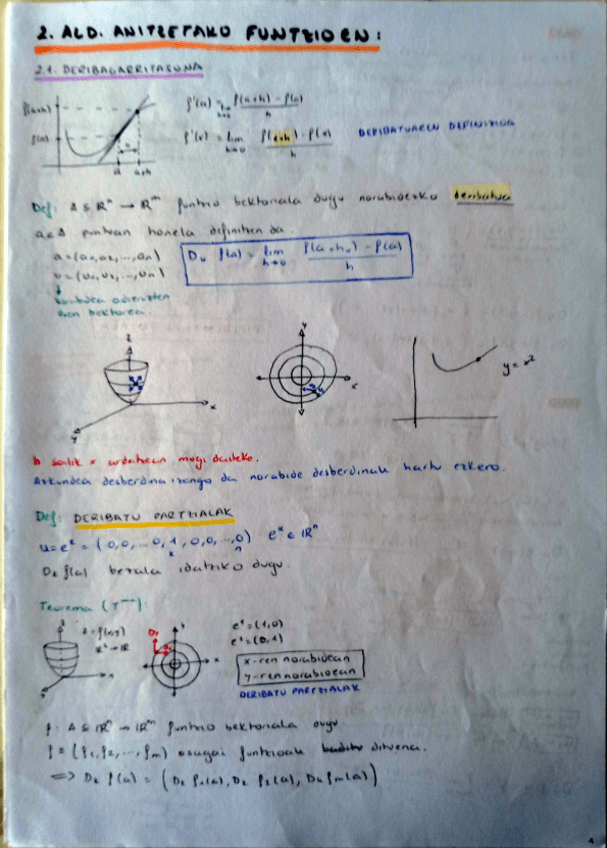 2. ALD. ANITZETAKO FUNTZIOEN:
2.1. DERIBAGARRITASUNA
f(a+h)
f(a)
a a+h
f'(a) = lim h→0 f(a+h) - f(a) / h
f'(x) = lim h→0 f(x+h) - f(x) / h DERIBATUAREN DEFINIZIOA
Def: A ⊆ ℝⁿ → ℝᵐ funtzio bektoriala dugu norabidezko deribatua
a ∈ A puntuan honela definitzen da.
a = (a₁, a₂, ..., aₙ)
u = (u₁, u₂, ..., uₙ)
Dᵤ f(a) = lim h→0 f(a+hᵤ) - f(a) / h
norabidea adierazten
duen bektorea.
z
x
y
y
x
y = x²
h soilik x ardatzean mugi daiteke.
Arkundea desberdina izango da norabide desberdinak hartu ezkero.
Def: DERIBATU PARTZIALAK
u = eᵏ = (0,0, ...0, 1, 0,0, ..., 0) eᵏ ∈ ℝⁿ
Dₖ f(a) bezala idatziko dugu.
Teorema (T):
z
z = f(x,y)
ℝ² → ℝ
x
y
D₂
y
x
e¹ = (1,0)
e² = (0,1)
x-ren norabidean
y-ren norabidean
DERIBATU PARTZIALAK
f: A ⊆ ℝⁿ → ℝᵐ funtzio bektoriala dugu
f = (f₁, f₂, ..., fₘ) osagai funtzioak dituena.
⇒ Dₖ f(a) = (Dₖ f₁(a), Dₖ f₂(a), Dₖ fₘ(a))
1